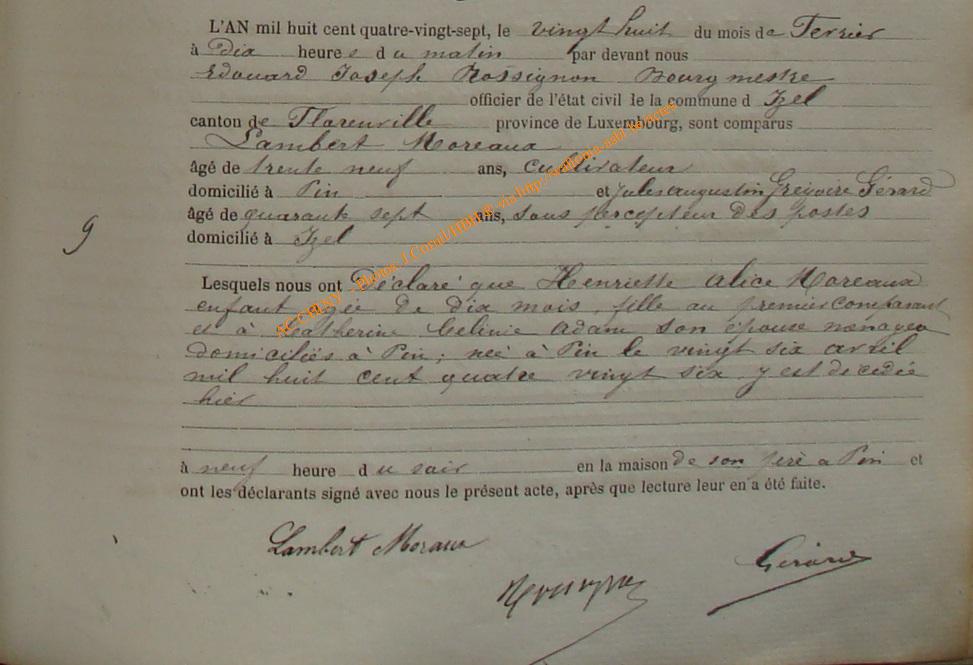 L'AN mil huit cent quatre-vingt-sept, le vingt huit du mois de Fevrier
à dix heures du matin par devant nous
Edouard Joseph Rossignon Bourgmestre
officier de l'état civil de la commune d Izel
canton de Florenville province de Luxembourg, sont comparus
Lambert Moreaux
âgé de trente neuf ans, cultivateur
domicilié à Pin et Jules Augustin Grégoire Gérard
âgé de quarante sept ans, sous percepteur des postes
domicilié à Izel
9
Lesquels nous ont Déclaré que Henriette Alice Moreaux
enfant agée de dix mois, fille au premier comparant
et à Catherine Celinie Adam son épouse
domiciliés à Pin; née à Pin le vingt six avril
mil huit cent quatre vingt six y est decedée
hier
à neuf heure du soir en la maison de son père a Pin et
ont les déclarants signé avec nous le présent acte, après que lecture leur en a été faite.
Lambert Moraux
Gérard